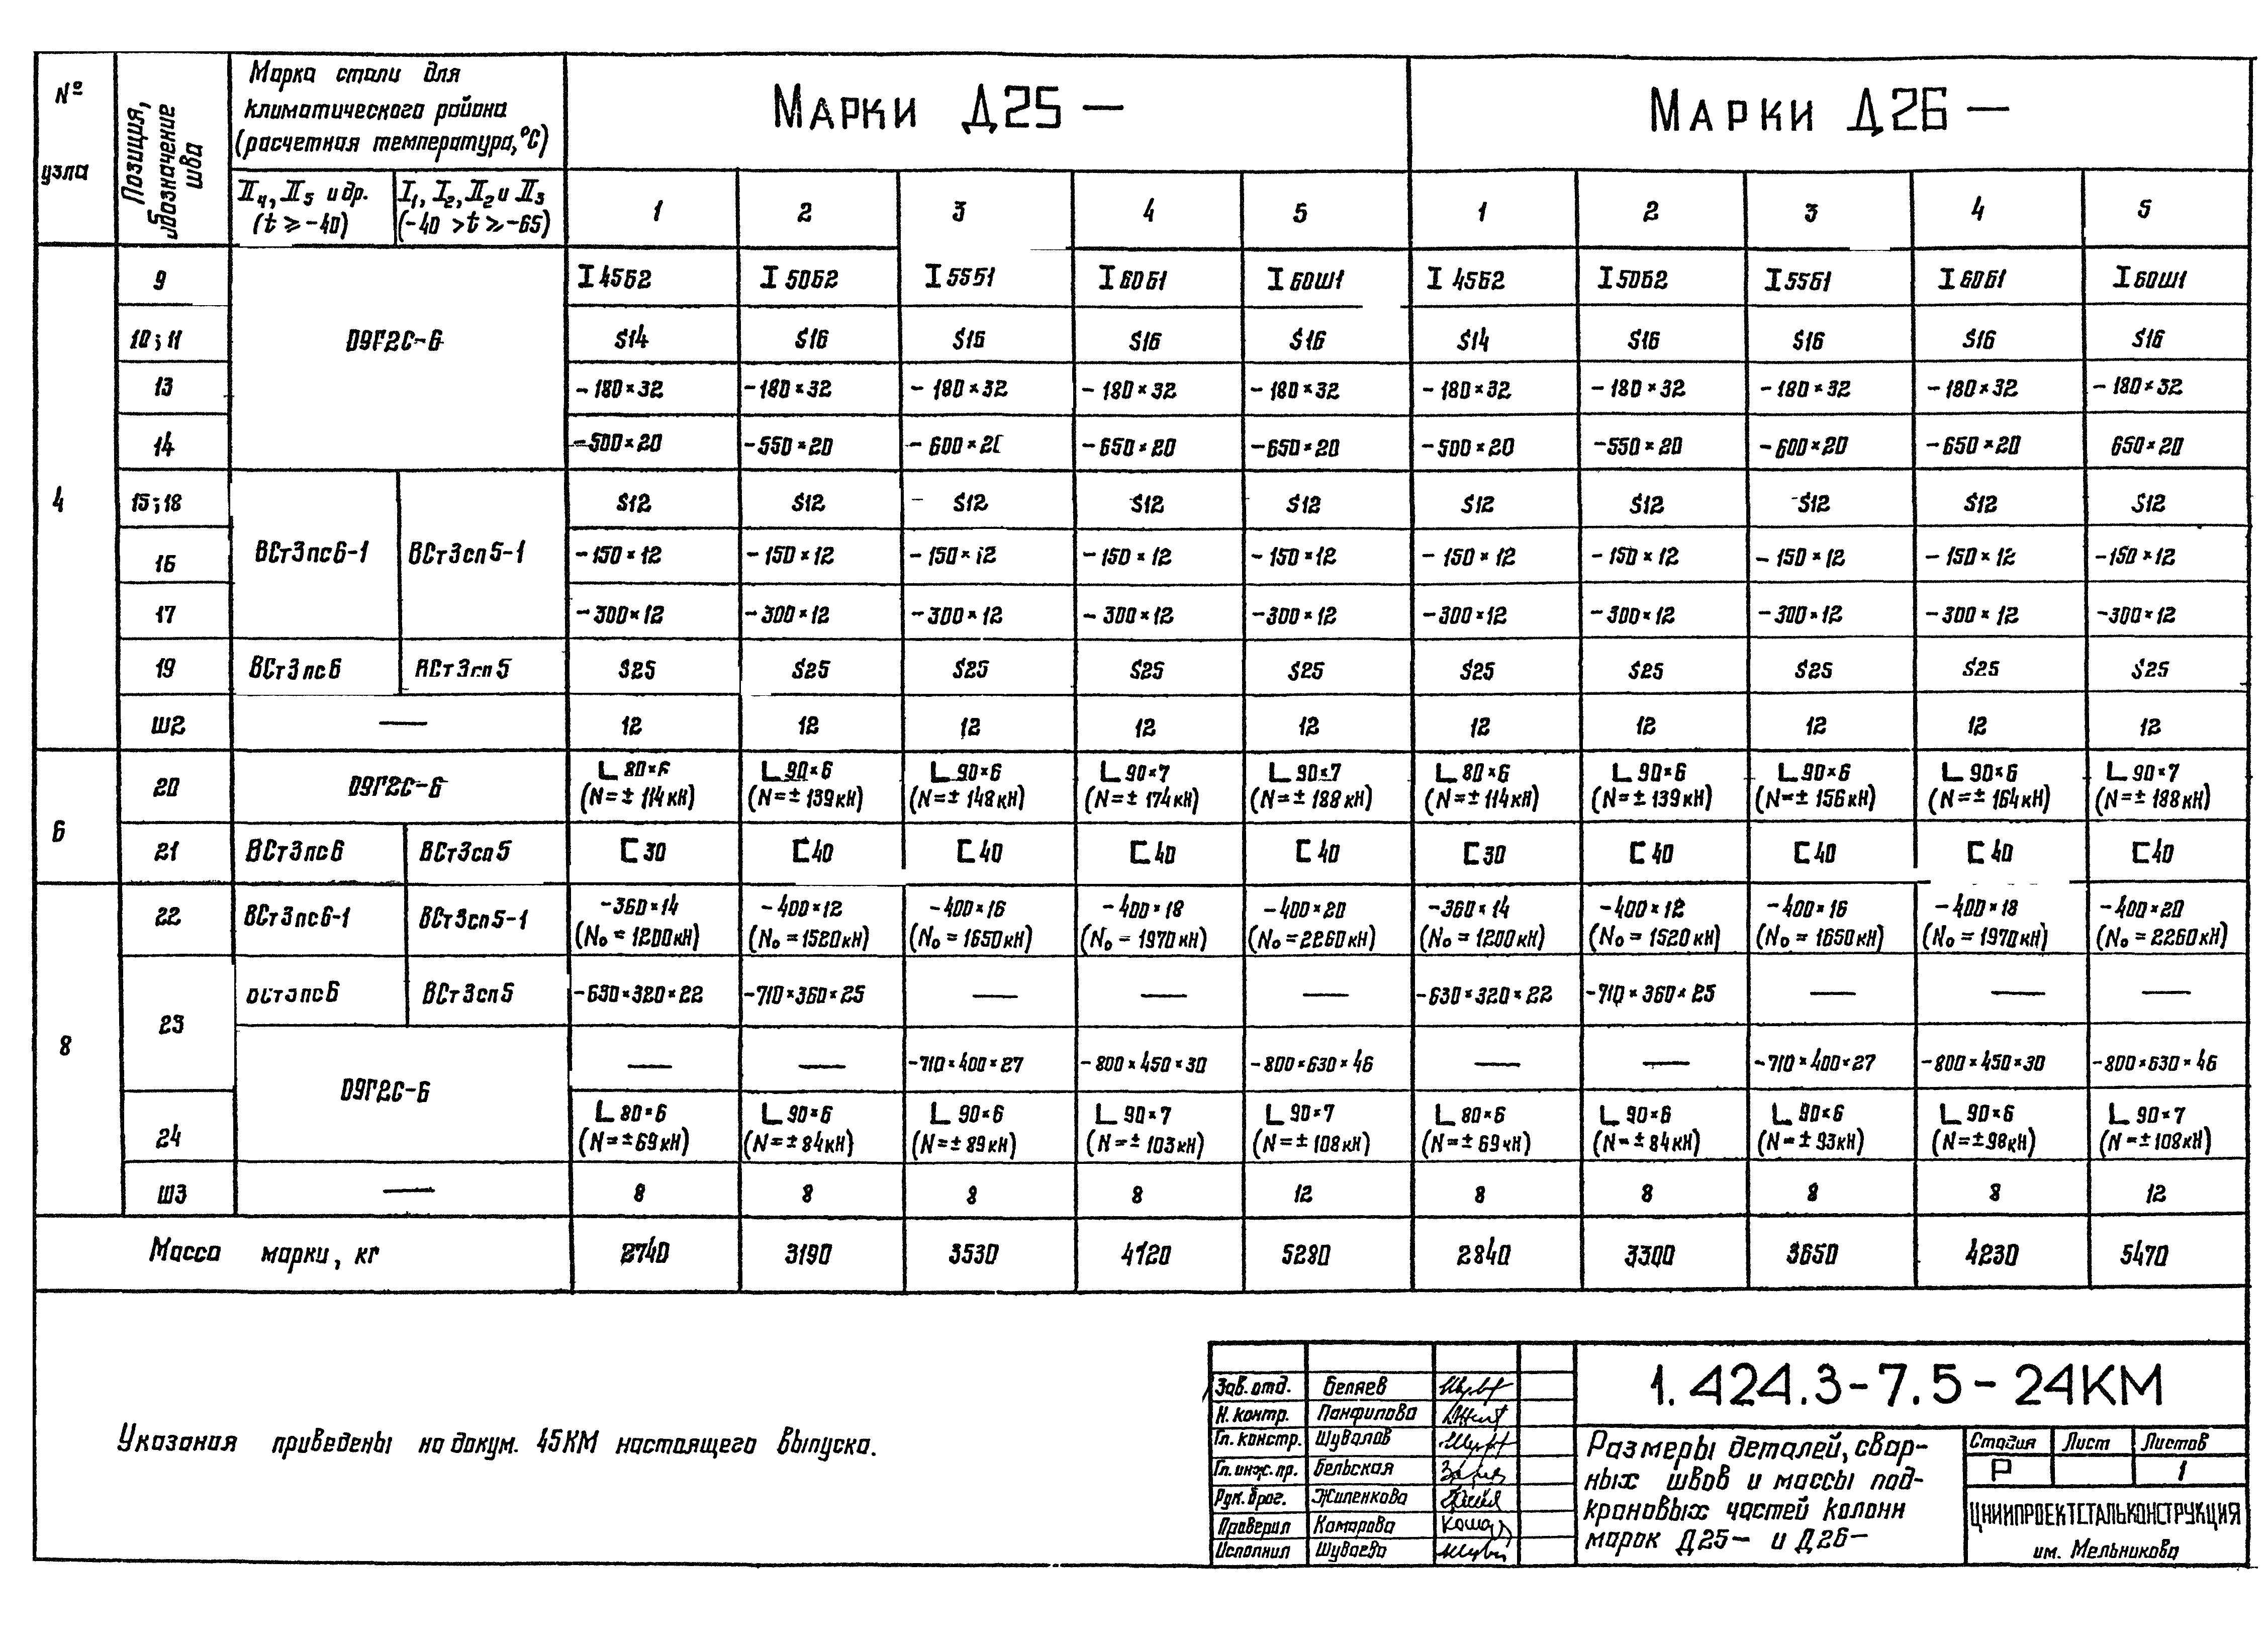 № узла
Позиция, обозначение шва
Марка стали для климатического района (расчетная температура, °С)
Марки Д25 —
Марки Д26 —
II₄, II₅ и др. (t ⩾ -40)
I₁, I₂, II₂ и II₃ (-40 > t ⩾ -65)
1 2 3 4 5 1 2 3 4 5
4
9 09Г2С-6 I 45Б2 I 50Б2 I 55Б1 I 60Б1 I 60Ш1 I 45Б2 I 50Б2 I 55Б1 I 60Б1 I 60Ш1
10; 11 S14 S16 S16 S16 S16 S14 S16 S16 S16 S16
13 -180×32 -180×32 -180×32 -180×32 -180×32 -180×32 -180×32 -180×32 -180×32 -180×32
14 -500×20 -550×20 -600×20 -650×20 -650×20 -500×20 -550×20 -600×20 -650×20 650×20
15; 18 ВСт3пс6-1 ВСт3сп5-1 S12 S12 S12 S12 S12 S12 S12 S12 S12 S12
16 -150×12 -150×12 -150×12 -150×12 -150×12 -150×12 -150×12 -150×12 -150×12 -150×12
17 -300×12 -300×12 -300×12 -300×12 -300×12 -300×12 -300×12 -300×12 -300×12 -300×12
19 ВСт3пс6 ВСт3сп5 S25 S25 S25 S25 S25 S25 S25 S25 S25 S25
Ш2 — 12 12 12 12 12 12 12 12 12 12
6
20 09Г2С-6 L 80×6 L 90×6 L 90×6 L 90×7 L 90×7 L 80×6 L 90×6 L 90×6 L 90×6 L 90×7
(N=±114кН) (N=±139кН) (N=±148кН) (N=±174кН) (N=±188кН) (N=±114кН) (N=±139кН) (N=±156кН) (N=±164кН) (N=±188кН)
21 ВСт3пс6 ВСт3сп5 [30 [40 [40 [40 [40 [30 [40 [40 [40 [40
8
22 ВСт3пс6-1 ВСт3сп5-1 -360×14 -400×12 -400×16 -400×18 -400×20 -360×14 -400×12 -400×16 -400×18 -400×20
(N₀=1200кН) (N₀=1520кН) (N₀=1650кН) (N₀=1970кН) (N₀=2260кН) (N₀=1200кН) (N₀=1520кН) (N₀=1650кН) (N₀=1970кН) (N₀=2260кН)
23 ВСт3пс6 ВСт3сп5 -630×320×22 -710×360×25 — — — -630×320×22 -710×360×25 — — —
09Г2С-6 — — -710×400×27 -800×450×30 -800×630×46 — — -710×400×27 -800×450×30 -800×630×46
24 L 80×6 L 90×6 L 90×6 L 90×7 L 90×7 L 80×6 L 90×6 L 90×6 L 90×6 L 90×7
(N=±69кН) (N=±84кН) (N=±89кН) (N=±103кН) (N=±108кН) (N=±69кН) (N=±84кН) (N=±93кН) (N=±98кН) (N=±108кН)
Ш3 — 8 8 8 8 12 8 8 8 8 12
Масса марки, кг 2740 3190 3530 4120 5280 2840 3300 3650 4230 5470
Указания приведены на докум. 45КМ настоящего выпуска.
Зав. отд. Беляев
Н. контр. Панфилова
Гл. констр. Шувалов
Гл. инж. пр. Бельская
Рук. бриг. Жиленкова
Проверил Комарова
Исполнил Шуваева
1.424.3-7.5-24КМ
Размеры деталей, свар-
ных швов и массы под-
крановых частей колонн
марок Д25— и Д26—
Стадия Лист Листов
Р 1
ЦНИИПРОЕКТСТАЛЬКОНСТРУКЦИЯ
им. Мельникова